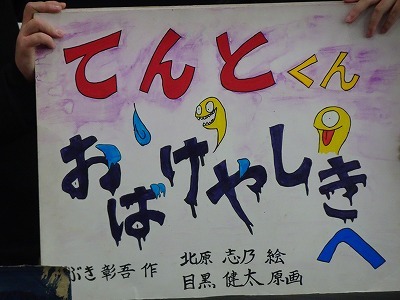 てんとくん
おばけやしきへ
ぶき 彰吾 作
北原 志乃 絵
目黒 健太 原画